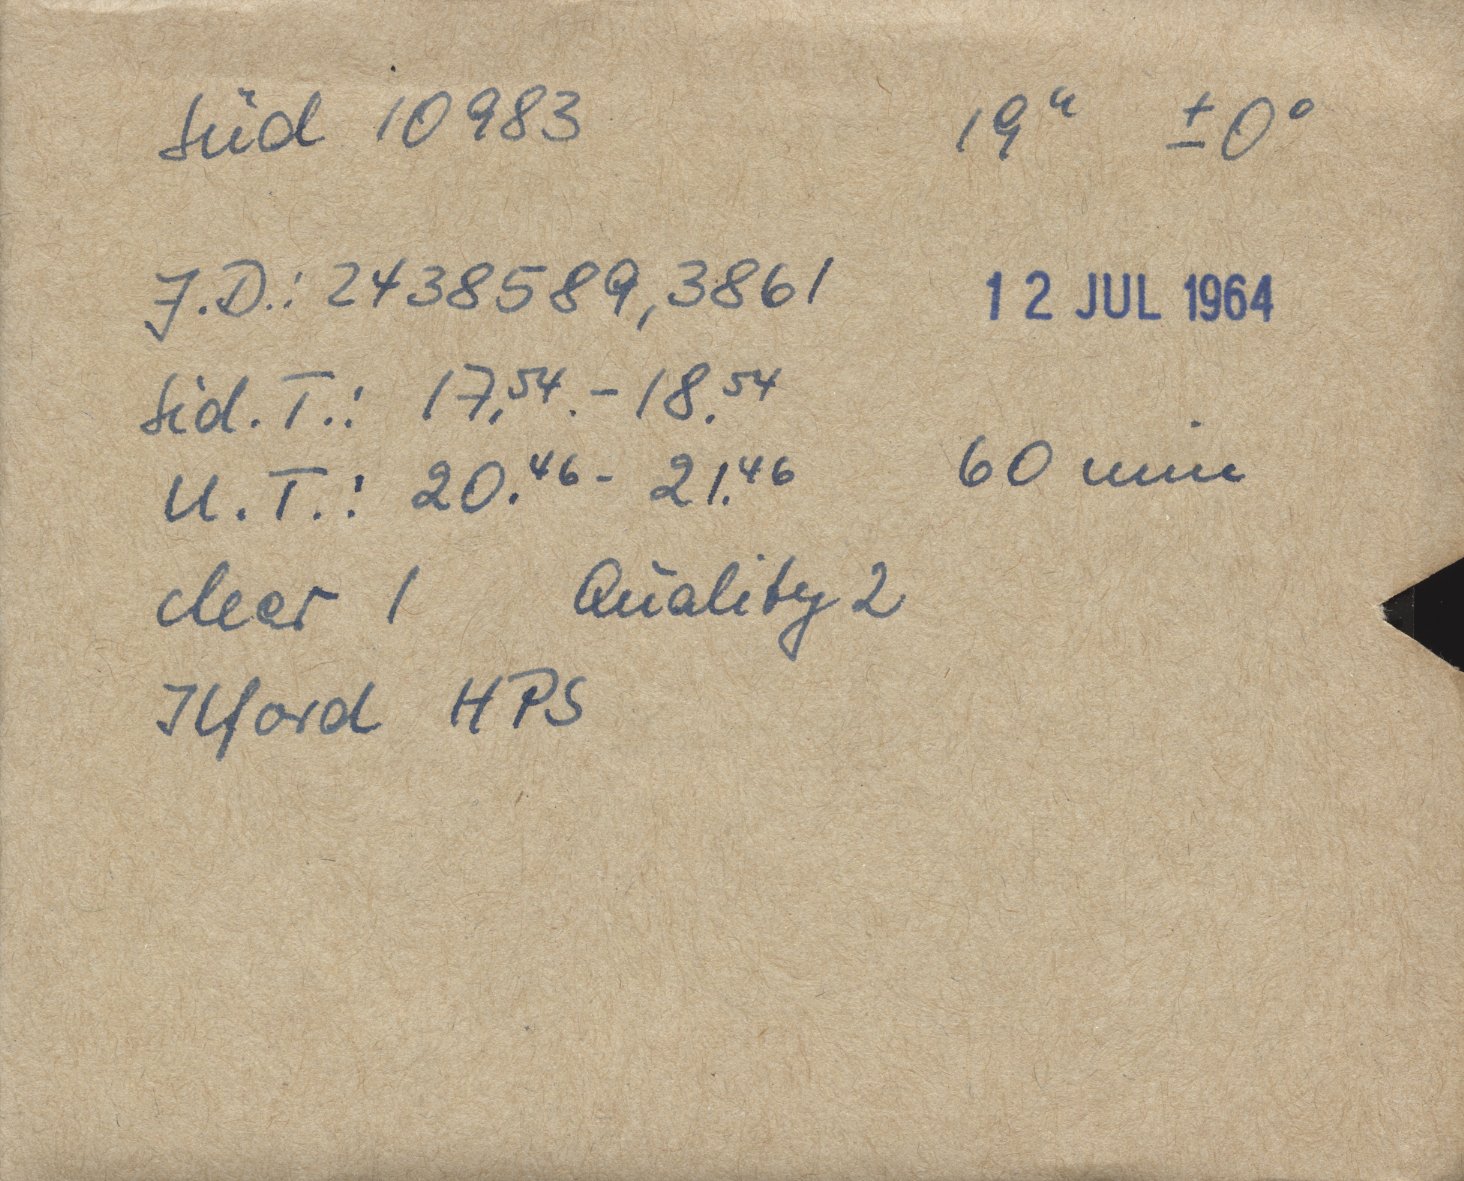 Süd 10983 19ʰ ±0°
J.D.: 2438589,3861 12 JUL 1964
Sid.T.: 17,54.-18.54
U.T.: 20.46- 21.46 60 min
clear 1 Quality 2
Ilford HPS